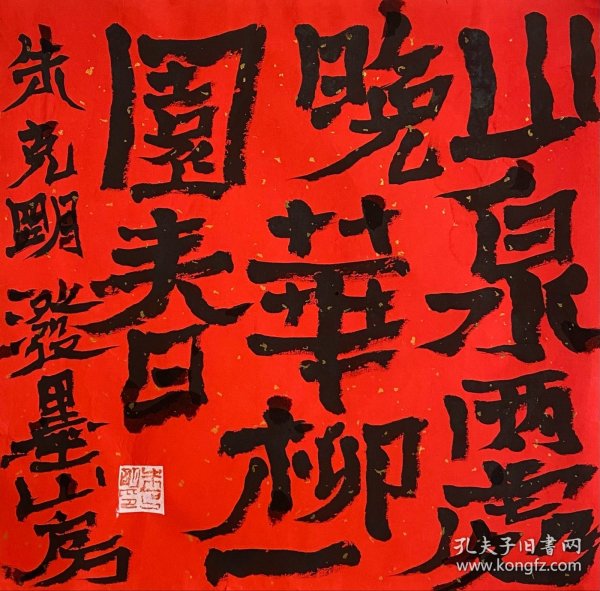 山泉両處
晚華柳一
園春日
朱克明潑墨山房
孔夫子旧書网
www.kongfz.com